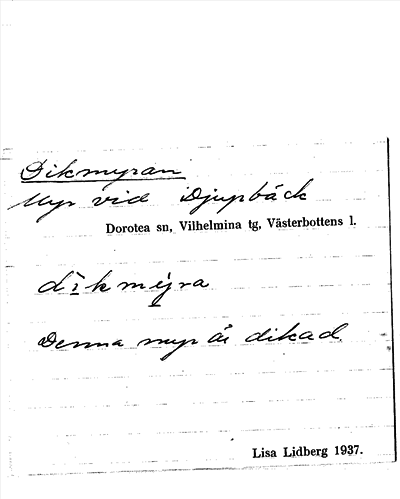 Dikmyran
Myr vid Djupbäck
Dorotea sn, Vilhelmina tg, Västerbottens l.
dìkmýra
Denna myr är dikad.
Lisa Lidberg 1937.